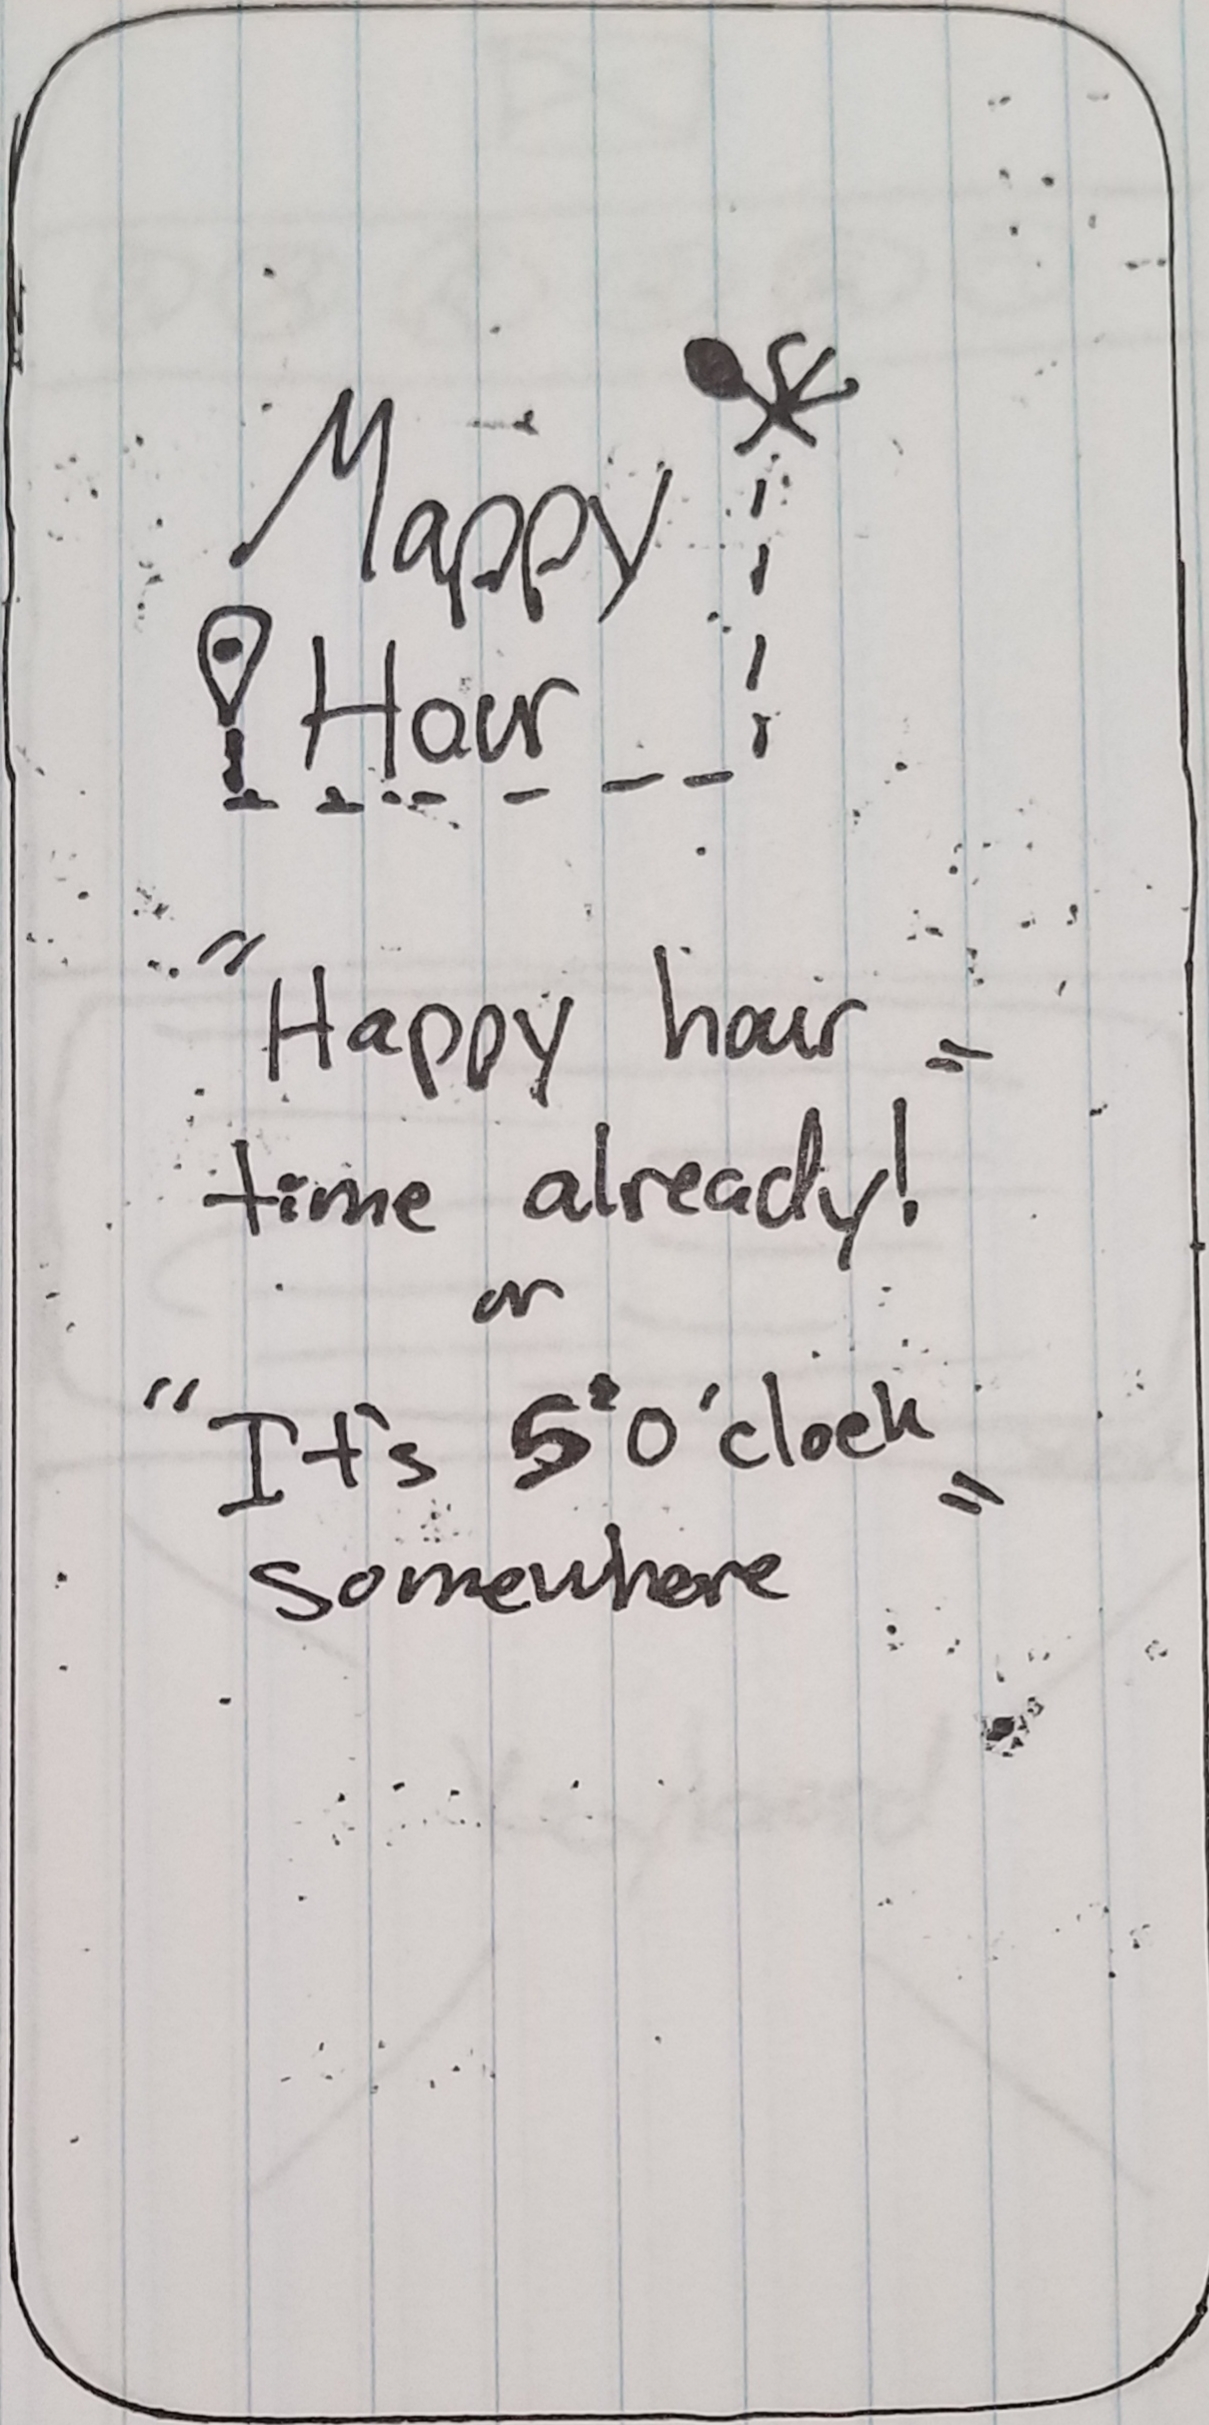 Mappy
Hour
"Happy hour"
time already!
or
"It's 5 O'clock"
somewhere